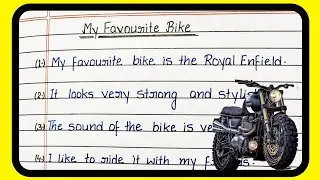 My Favourite Bike
(1) My favourite bike is the Royal Enfield.
(2) It looks very strong and
(3) The sound of the bike is
(4) I like to ride it with my